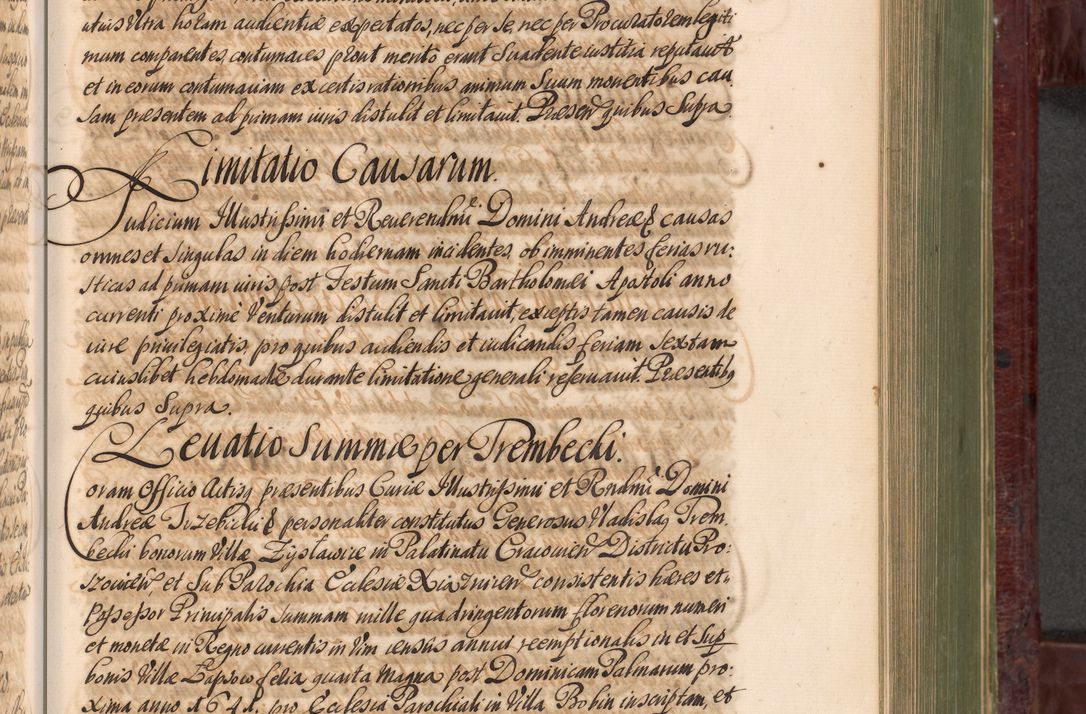 atuis Ultra horam audientiæ expectatos, nec per se, nec per Procuratorem legiti
mum comparentes, contumaces prout merito erant Suadente iustitia reputauit
et in eorum contumaciam ex certis rationibus animum Suum mouentibus cau
sam præsentem ad primam iuris distulit et limitauit. Præsen. quibus Supra.
Limitatio Causarum.
Iudicium Illustrissimi et Reuerendmi Domini Andreæ & causas
omnes et Singulas in diem hodiernam incidentes, ob imminentes ferias ru:
sticas ad primam iuris post Festum Sancti Bartholomei Apostoli anno
currenti proximè Venturum distulit et limitauit, exceptis tamen causis de
iure priuilegiatis, pro quibus audiendis et iudicandis feriam Sextam
cuiuslibet hebdomadæ durante limitatione generali reseruauit. Præsentibq
quibus Supra.
Leuatio Summæ per Trembecki.
Coram Officio Actisq præsentibus Curiæ Illustrissimi et Rndmi Domini
Andreæ Trzebicki & personaliter constitutus Generosus Vladislaq Trem
becki bonorum Villæ Zysławice in Palatinatu Cracouien Districtu Pro:
szouicen, et Sub Parochia Ecclesiæ Xiaznicen consistentis hæres et
Possessor Principalis Summam mille quadringentorum florenorum numeri
et monetæ in Regno currentis in Vim census annui reemptionalis in et Sup
bonis Villæ Łapszow feria quarta Magna post Dominicam Palmarum pro:
xima anno 1641. pro Ecclesia Parochiali in Villa Bobin inscriptam, et